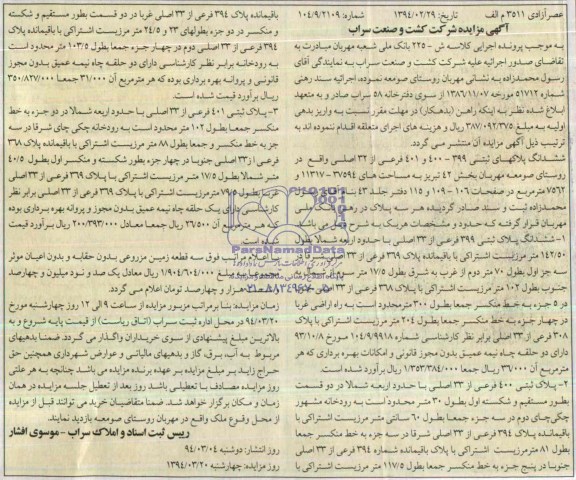 عصرآزادی ۳۵۱۱ م الف تاریخ: ۱۳۹۴/۰۲/۲۹ شماره: ۱۰۴/۹/۲۱۰۹
آگهی مزایده شرکت کشت و صنعت سراب
به موجب پرونده اجرایی کلاسه ش - ۲۲۵ بانک ملی شعبه مهربان مبادرت به
تقاضای صدور اجرائیه علیه شرکت کشت و صنعت سراب به نمایندگی آقای
رسول محمدزاده به نشانی مهربان روستای صومعه نموده، اجرائیه سند رهنی
شماره ۵۱۷۱۲ مورخه ۱۳۸۶/۱۱/۰۷ از سوی دفترخانه ۵۸ سراب صادر و به متعهد
ابلاغ شده نظر به اینکه راهن (بدهکار) در مهلت مقرر نسبت به واریز بدهی
اولیه به مبلغ ۳۸۷/۰۹۲/۳۷۵ ریال و هزینه های اجرای متعلقه اقدام ننموده اند به
ترتیب ذیل آگهی مزایده آن منتشر می گردد.
ششدانگ پلاکهای ثبتی ۳۹۹ - ۴۰۰ و ۴۰۱ فرعی از ۳۳ اصلی واقع در
روستای صومعه مهربان بخش ۴۲ تبریز به مساحت های ۳۷۵۹۴ - ۱۱۳۱۷ و
۷۵۶۲ مترمربع در صفحات ۱۰۶ - ۱۰۹ و ۱۱۵ دفتر جلد ۴۳ بنام
محمدزاده ثبت و سند صادر گردیده هر سه پلاک در رهن بانک ملی
مهربان قرار گرفته که حدود و مشخصات هریک به شرح ذیل می باشد
۱- ششدانگ پلاک ثبتی ۳۹۹ فرعی از ۳۳ اصلی با حدود اربعه شمالا بطول
۱۴۲/۵۰ متر مرزیست اشتراکی با باقیمانده پلاک ۳۶۹ فرعی از ۳۳ اصلی
سه جزء اول بطول ۷۰ متر دوم از غرب به شرق بطول ۱۷/۵ متر
جنوب بطول ۱۰۲ متر مرزیست اشتراکی با پلاک ۳۶۸ فرعی از ۳۳ اصلی
در ۵ جزء به خط منکسر جمعا بطول ۳۰۰ متر محدود است به راه اراضی غربا
در چهار جزء به خط منکسر جمعا بطول ۲۰۴ متر مرزیست اشتراکی با پلاک
۳۰۸ فرعی از ۳۳ اصلی برابر نظر کارشناسی شماره ۱۰۴/۹/۹۹۱۸ مورخ ۹۳/۱۰/۸
دارای دو حلقه چاه نیمه عمیق بدون مجوز قانونی و امکانات بهره برداری که هر
مترمربع آن ۳۶/۰۰۰ ریال جمعا ۱/۳۵۳/۳۸۴/۰۰۰ ریال برآورد شده است.
۲- پلاک ثبتی ۴۰۰ فرعی از ۳۳ اصلی با حدود اربعه شمالا در دو قسمت
بطور مستقیم و شکسته اول بطول ۳۰ متر محدود است به رودخانه مشهور
چکی چای دوم در سه جزء، جمعا بطول ۶۰ سانتی متر مرزیست اشتراکی با
باقیمانده پلاک ۳۹۴ فرعی از ۳۳ اصلی شرقا در سه جزء به خط منکسر جمعا
بطول ۸۱ مترمرزیست اشتراکی با پلاک باقیمانده شماره ۳۹۴ فرعی از ۳۳ اصلی
جنوبا در پنج جزء به خط منکسر جمعا بطول ۱۱۷/۵ متر مرزیست اشتراکی با
باقیمانده پلاک ۳۹۴ فرعی از ۳۳ اصلی غربا در دو قسمت بطور مستقیم و شکسته
و منکسر در دو جزء بطولهای ۲۳ و ۲۴/۵ متر مرزیست اشتراکی با باقیمانده پلاک
۳۹۴ فرعی از ۳۳ اصلی دوم در چهار جزء جمعا بطول ۱۰۳/۵ متر محدود است
به رودخانه برابر نظر کارشناسی دارای دو حلقه چاه نیمه عمیق بدون مجوز
قانونی و پروانه بهره برداری بوده که هر مترمربع آن ۳۱/۰۰۰ جمعا ۳۵۰/۸۲۷/۰۰۰
ریال برآورد قیمت شده است.
۳- پلاک ثبتی ۴۰۱ فرعی از ۳۳ اصلی با حدود اربعه شمالا در دو جزء به خط
منکسر جمعا بطول ۱۰۲ متر محدود است به رودخانه چکی چای شرقا در سه
جزء به خط منکسر و جمعا بطول ۸۸ متر مرزیست اشتراکی با باقیمانده پلاک ۳۶۸
فرعی از ۳۳ اصلی جنوبا در چهار جزء بطور شکسته و منکسر اول بطول ۴۰/۵
متر شمالا بطول ۱۷/۵ متر مرزیست اشتراکی با پلاک ۳۶۹ فرعی از ۳۳ اصلی
غربا بطول ۷۹/۵ مترمرزیست اشتراکی با پلاک ۳۶۹ فرعی از ۳۳ اصلی برابر نظر
کارشناسی دارای یک حلقه چاه نیمه عمیق بدون مجوز و پروانه بهره برداری بوده
که هر مترمربع آن ۲۶/۵۰۰ ریال جمعا معادل ۲۰۰/۳۹۳/۰۰۰ ریال برآورد قیمت
شده است.
با اعلام مراتب فوق سه قطعه زمین مزروعی بدون حقابه و بدون اعیان موثر
مجموعا به مبلغ ۱/۹۰۴/۶۰۴/۰۰۰ ریال معادل یک صد و نود میلیون و چهارصد
هزار و چهارصد تومان اعلام می گردد.
زمان مزایده: بنا برمراتب مزبور مزایده از ساعت ۹ الی ۱۲ روز چهارشنبه مورخ
۹۴/۰۳/۲۰ در محل اداره ثبت سراب (اتاق ریاست) از قیمت پایه شروع و به
بالاترین مبلغ پیشنهادی از سوی خریداران واگذار می گردد. ضمنا بدهیهای
مربوط به آب، برق، گاز و بدهیهای مالیاتی و عوارض شهرداری همچنین حق
حراج زاید بر مبلغ مزایده بر عهده برنده مزایده می باشد چنانچه به هر علتی
روز مزایده مصادف با تعطیلی باشد روز بعد از تعطیل جلسه مزایده در همان
زمان و مکان برگزار خواهد شد. ضمنا متقاضیان خرید می توانند قبل از مزایده
از محل وقوع ملک واقع در مهربان روستای صومعه بازدید نمایند.
رییس ثبت اسناد و املاک سراب - موسوی افشار
روز انتشار: دوشنبه ۹۴/۰۳/۰۴
روز مزایده: چهارشنبه ۱۳۹۴/۰۳/۲۰
ParsNamadData
۰۲۱-۸۸۳۴۹۶۷۰-۵